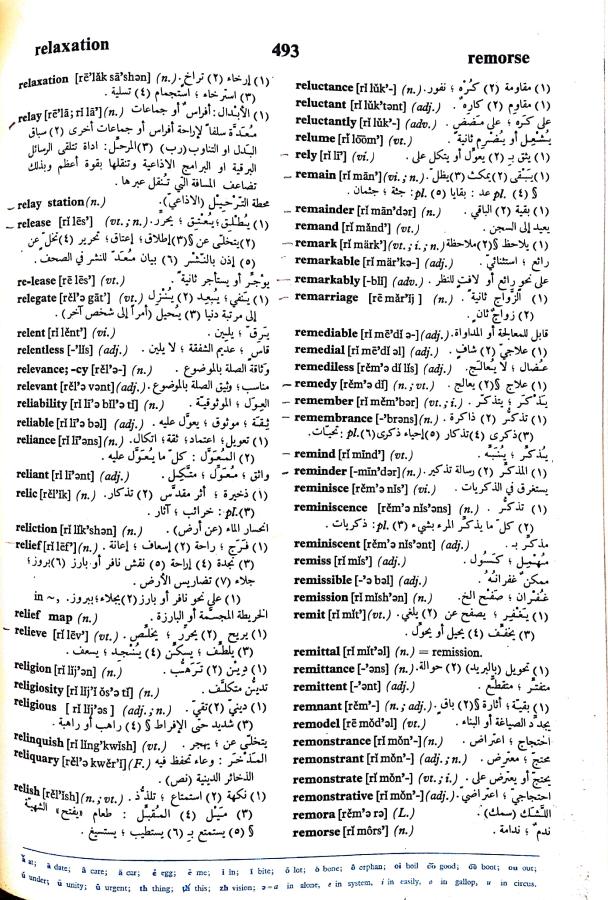 relaxation
493
remorse
relaxation [rē'lăk sā'shən] (n.) (١) إرخاء (٢) تراخٍ.
(٣) استرخاء ؛ استجمام (٤) تسلية .
relay [rē'lā; rĭ lā'] (n.) (١) الأبدال: أفراس أو جماعات
مُعَدَّة سلفاً لإراحة أفراس أو جماعات أخرى (٢) سباق
البدل او التناوب (رب) (٣) المرحِّل: اداة تتلقى الرسائل
البرقية او البرامج الاذاعية وتنقلها بقوة أعظم وبذلك
تضاعف المسافة التي تُنقل عبرها .
relay station (n.) محطة الترحيل (الاذاعي).
release [rĭ lēs'] (vt.; n.) (١) يُطلِق؛ يُعْتِق ؛ يحرّر.
(٢) يتخلّى عن § (٣) إطلاق؛ إعتاق؛ تحرير (٤) تخلٍّ عن
(٥) إذن بالنَّشْر (٦) بيان مُعَدّ للنشر في الصحف.
re-lease [rē lēs'] (vt.) يؤجِّر أو يستأجر ثانيةً .
relegate [rĕl'ə gāt'] (vt.) (١) يَنفي؛ يُبعِد (٢) يُنْزِل
إلى مرتبة دنيا (٣) يُحيل (أمراً إلى شخص آخر) .
relent [rĭ lĕnt'] (vi.) يَرِقّ ؛ يلين .
relentless [-'lĭs] (adj.) قاسٍ ؛ عديم الشفقة ؛ لا يلين .
relevance; -cy [rĕl'ə-] (n.) وثاقة الصلة بالموضوع .
relevant [rĕl'ə vənt] (adj.) مناسب؛ وثيق الصلة بالموضوع .
reliability [rĭ lī'ə bĭl'ə tĭ] (n.) العِوَل ؛ الموثوقيّة .
reliable [rĭ lī'ə bəl] (adj.) ثِقَة ؛ موثوق ؛ يعوَّل عليه .
reliance [rĭ lī'əns] (n.) (١) تعويل؛ اعتماد؛ ثقة؛ اتكال.
(٢) المُعَوَّل : كل ما يُعَوَّل عليه .
reliant [rĭ lī'ənt] (adj.) واثق ؛ مُعَوِّل ؛ متّكل .
relic [rĕl'ĭk] (n.) (١) ذخيرة ؛ أثر مقدّس (٢) تذكار.
(٣) pl.: خرائب ؛ آثار .
reliction [rĭ lĭk'shən] (n.) انحسار الماء (عن أرض) .
relief [rĭ lēf'] (n.) (١) فَرَج ؛ راحة (٢) إسعاف ؛ إعانة .
(٣) نجدة (٤) إراحة (٥) نقش نافر أو بارز (٦) بروز؛
جلاء (٧) تضاريس الأرض .
in ~, (١) على نحو نافر أو بارز (٢) بجلاء؛ ببروز .
relief map (n.) الخريطة المجسَّمة أو البارزة .
relieve [rĭ lēv'] (vt.) (١) يريح (٢) يحرِّر ؛ يخلِّص .
(٣) يلطِّف ؛ يسكِّن (٤) يُنْجِد ؛ يسعف .
religion [rĭ lĭj'ən] (n.) (١) دِيْن (٢) تَرَهُّب .
religiosity [rĭ lĭj'ĭ ŏs'ə tĭ] (n.) تديُّن متكلَّف .
religious [rĭ lĭj'əs] (adj.; n.) (١) دينيّ (٢) تقيّ .
(٣) شديد حتى الإفراط § (٤) راهب أو راهبة .
relinquish [rĭ lĭng'kwĭsh] (vt.) يتخلّى عن ؛ يهجر .
reliquary [rĕl'ə kwĕr'ĭ] (F.) المذّخَر : وعاء تحفظ فيه
الذخائر الدينية (نص) .
relish [rĕl'ĭsh] (n.; vt.) (١) نكهة (٢) استمتاع ؛ تلذّذ .
(٣) مَيْل (٤) المُقَبِّل : طعام «يفتح» الشهيّة
§ (٥) يستمتع بـ (٦) يستطيب ؛ يستسيغ .
reluctance [rĭ lŭk'-] (n.) (١) مقاومة (٢) كُرْه ؛ نفور .
reluctant [rĭ lŭk'tənt] (adj.) (١) مقاوِم (٢) كاره .
reluctantly [rĭ lŭk'-] (adv.) على كره ؛ على مَضَض .
relume [rĭ lōōm'] (vt.) يُشعِل أو يُضرِم ثانيةً .
rely [rĭ lī'] (vi.) (١) يثق بـ (٢) يعوِّل أو يتكل على .
remain [rĭ mān'] (vi.; n.) (١) يَبْقى (٢) يمكث (٣) يظلّ .
§ (٤) pl. عد : بقايا (٥) pl.: جثة ؛ جثمان .
remainder [rĭ mān'dər] (n.) (١) بقية (٢) الباقي .
remand [rĭ mănd'] (vt.) يعيد إلى السجن .
remark [rĭ märk'] (vt.; i.; n.) (١) يلاحظ § (٢) ملاحظة .
remarkable [rĭ mär'kə-] (adj.) رائع ؛ استثنائيّ .
remarkably [-blĭ] (adv.) على نحو رائع أو لافت للنظر .
remarriage [rē măr'ĭj] (n.) (١) الزواج ثانيةً .
(٢) زواج ثانٍ .
remediable [rĭ mē'dĭ ə-] (adj.) قابل للمعالجة أو المداواة .
remedial [rĭ mē'dĭ əl] (adj.) (١) علاجيّ (٢) شافٍ .
remediless [rĕm'ə dĭ lĭs] (adj.) عُضال ؛ لا يُعالَج .
remedy [rĕm'ə dĭ] (n.; vt.) (١) علاج § (٢) يعالج .
remember [rĭ mĕm'bər] (vt.; i.) يَذْكُر ؛ يتذكّر .
remembrance [-'brəns] (n.) (١) تذكُّر (٢) ذاكرة .
(٣) ذكرى (٤) تذكار (٥) إحياء ذكرى (٦) pl.: تحيّات .
remind [rĭ mīnd'] (vt.) يُذكِّر ؛ يُنبِّه .
reminder [-mīn'dər] (n.) (١) المذكِّر (٢) رسالة تذكير .
reminisce [rĕm'ə nĭs'] (vi.) يستغرق في الذكريات .
reminiscence [rĕm'ə nĭs'əns] (n.) (١) تذكُّر .
(٢) كل ما يذكِّر المرء بشيء (٣) pl.: ذكريات .
reminiscent [rĕm'ə nĭs'ənt] (adj.) مذكِّر بـ .
remiss [rĭ mĭs'] (adj.) مُهْمِل ؛ كَسول .
remissible [-'ə bəl] (adj.) ممكن غفرانُه .
remission [rĭ mĭsh'ən] (n.) غُفْران ؛ صفح الخ .
remit [rĭ mĭt'] (vt.) (١) يَغفِر ؛ يصفح عن (٢) يلغي .
(٣) يخفِّف (٤) يحيل أو يحوِّل .
remittal [rĭ mĭt'əl] (n.) = remission.
remittance [-'əns] (n.) (١) تحويل (بالبريد) (٢) حوالة .
remittent [-'ənt] (adj.) متفتِّر ؛ متقطِّع .
remnant [rĕm'-] (n.; adj.) (١) بقيّة ؛ أثارة § (٢) باقٍ .
remodel [rē mŏd'əl] (vt.) يجدِّد الصياغة أو البناء .
remonstrance [rĭ mŏn'-] (n.) احتجاج ؛ اعتراض .
remonstrant [rĭ mŏn'-] (adj.; n.) محتجّ ؛ معترض .
remonstrate [rĭ mŏn'-] (vt.; i.) يحتجّ أو يعترض على .
remonstrative [rĭ mŏn'-] (adj.) احتجاجي ؛ اعتراضيّ .
remora [rĕm'ə rə] (L.) اللَّشَك (سمك) .
remorse [rĭ môrs'] (n.) ندم ؛ ندامة .
ă at; ā date; â care; ä car; ĕ egg; ē me; ĭ in; ī bite; ŏ lot; ō bone; ô orphan; oi boil ŏŏ good; ōō boot; ou out;
ŭ under; ū unity; û urgent; th thing; th this; zh vision; ə = a in alone, e in system, i in easily, o in gallop, u in circus.